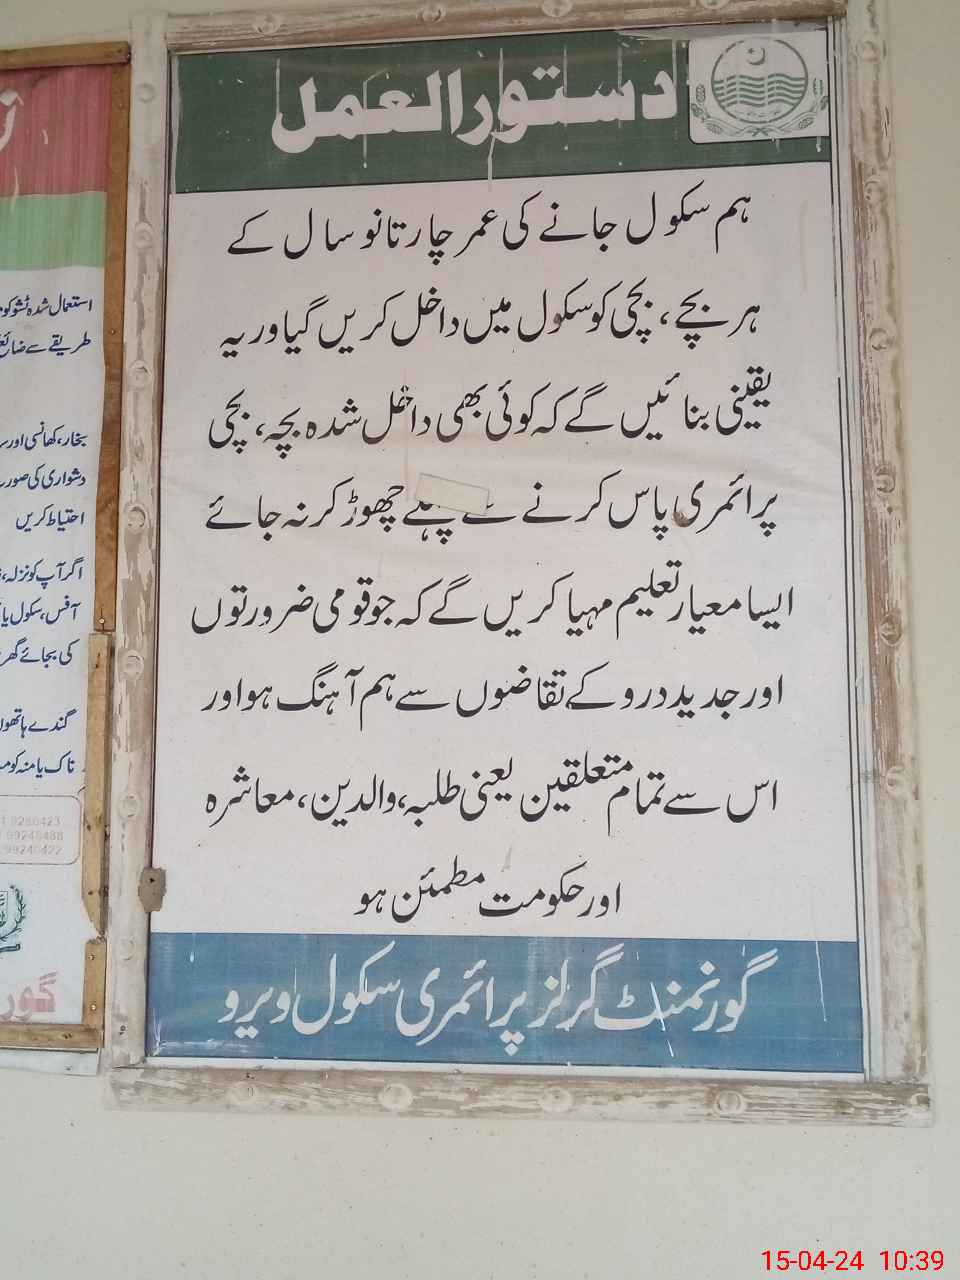 دستورالعمل
ہم سکول جانے کی عمر چار تا نو سال کے
ہر بچے، بچی کو سکول میں داخل کریں گیا ور یہ
یقینی بنائیں گے کہ کوئی بھی داخل شدہ بچہ، بچی
پرائمری پاس کرنے سے پہلے چھوڑ کر نہ جائے
ایسا معیار تعلیم مہیا کریں گے کہ جو قومی ضرورتوں
اور جدید درو کے تقاضوں سے ہم آہنگ ہو اور
اس سے تمام متعلقین یعنی طلبہ، والدین، معاشرہ
اور حکومت مطمئن ہو
گورنمنٹ گرلز پرائمری سکول ویرو
استعمال شدہ ٹشو کو
طریقے سے ضائع
بخار، کھانسی اور
دشواری کی صورت
احتیاط کریں
اگر آپ کو نزلہ،
آفس، سکول یا
کی بجائے گھر
گندے ہاتھوں
ناک یا منہ کو
9280423
99248488
99240422
گور
15-04-24 10:39